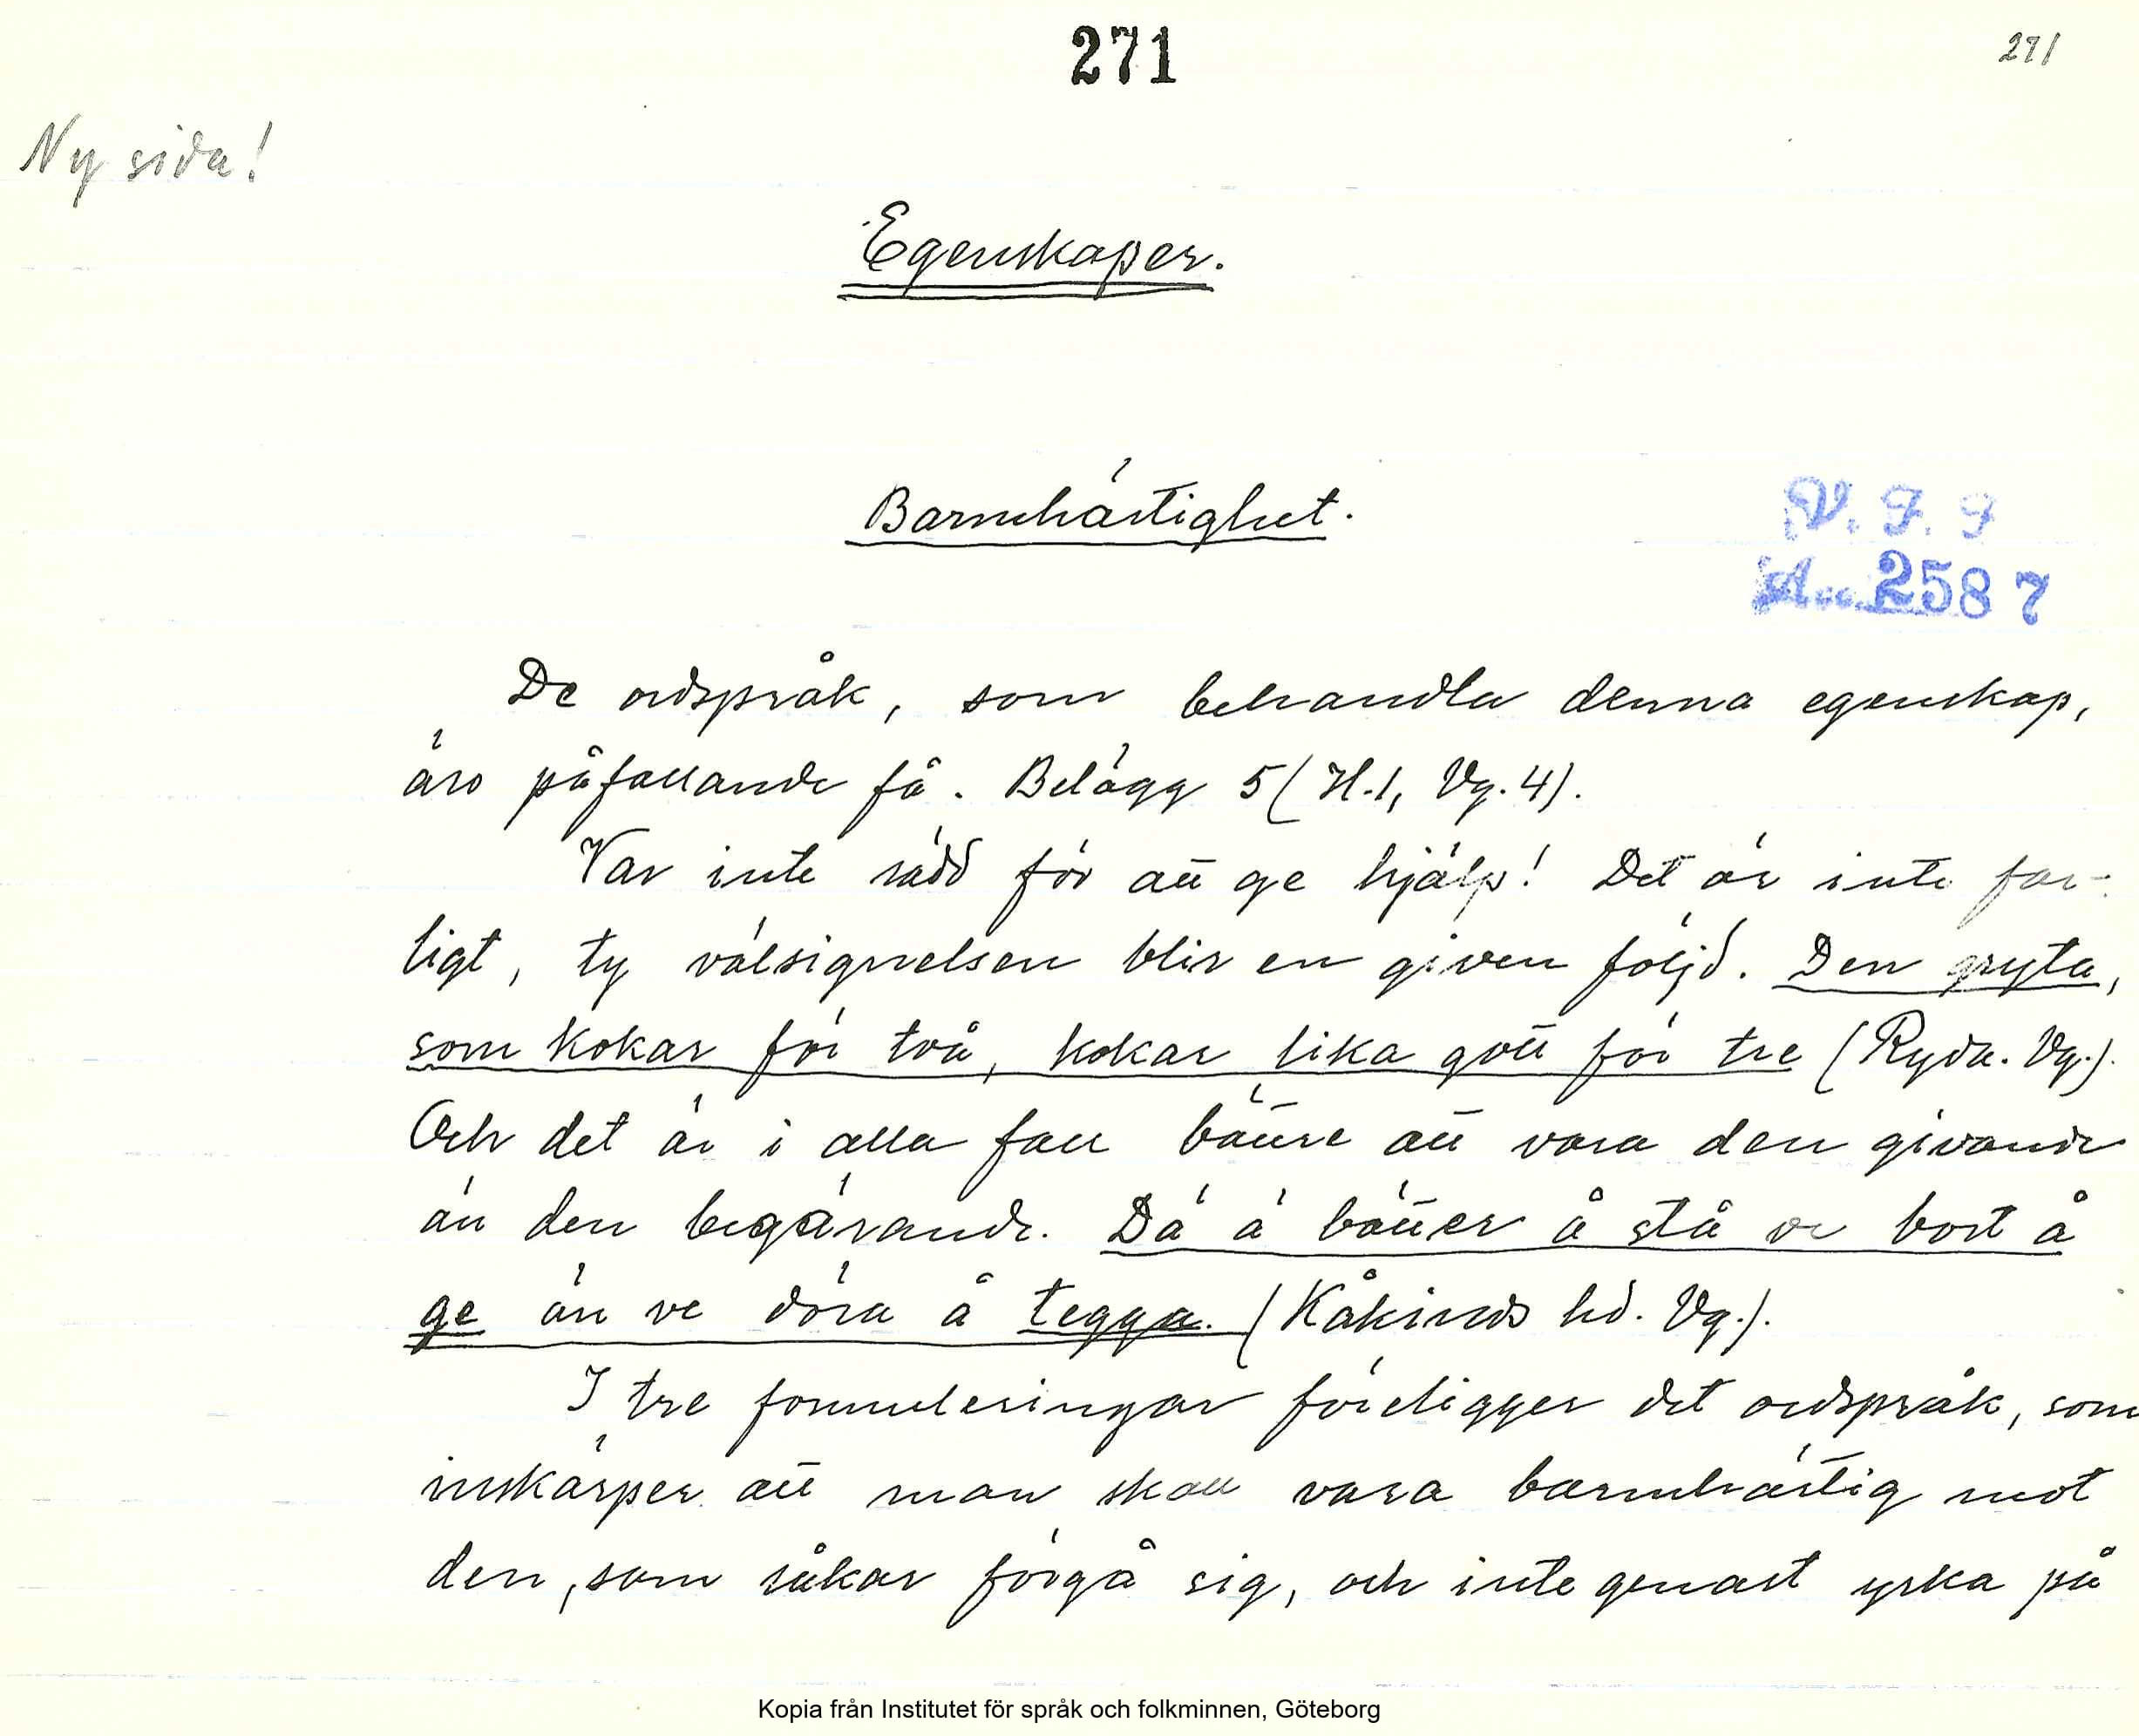 271
271
Ny sida!
Egenskaper.
Barmhärtighet.
V. F. F
Acc. 2587
De ordspråk, som behandla denna egenskap,
äro påfallande få. Belägg 5 (H. 1, Vg. 4).
Var inte rädd för att ge hjälp! Det är inte far-
ligt, ty välsignelsen blir en given följd. Den gryta,
som kokar för två, kokar lika gott för tre (Ryda. Vg.).
Och det är i alla fall bättre att vara den givande
än den begärande. Dä ä bätter å stå ve bort å
ge än ve döra å tegga. (Kåkinds hd. Vg.).
I tre formuleringar föreligger det ordspråk, som
inskärper att man skall vara barmhärtig mot
den, som råkar förgå sig, och inte genast yrka på
Kopia från Institutet för språk och folkminnen, Göteborg